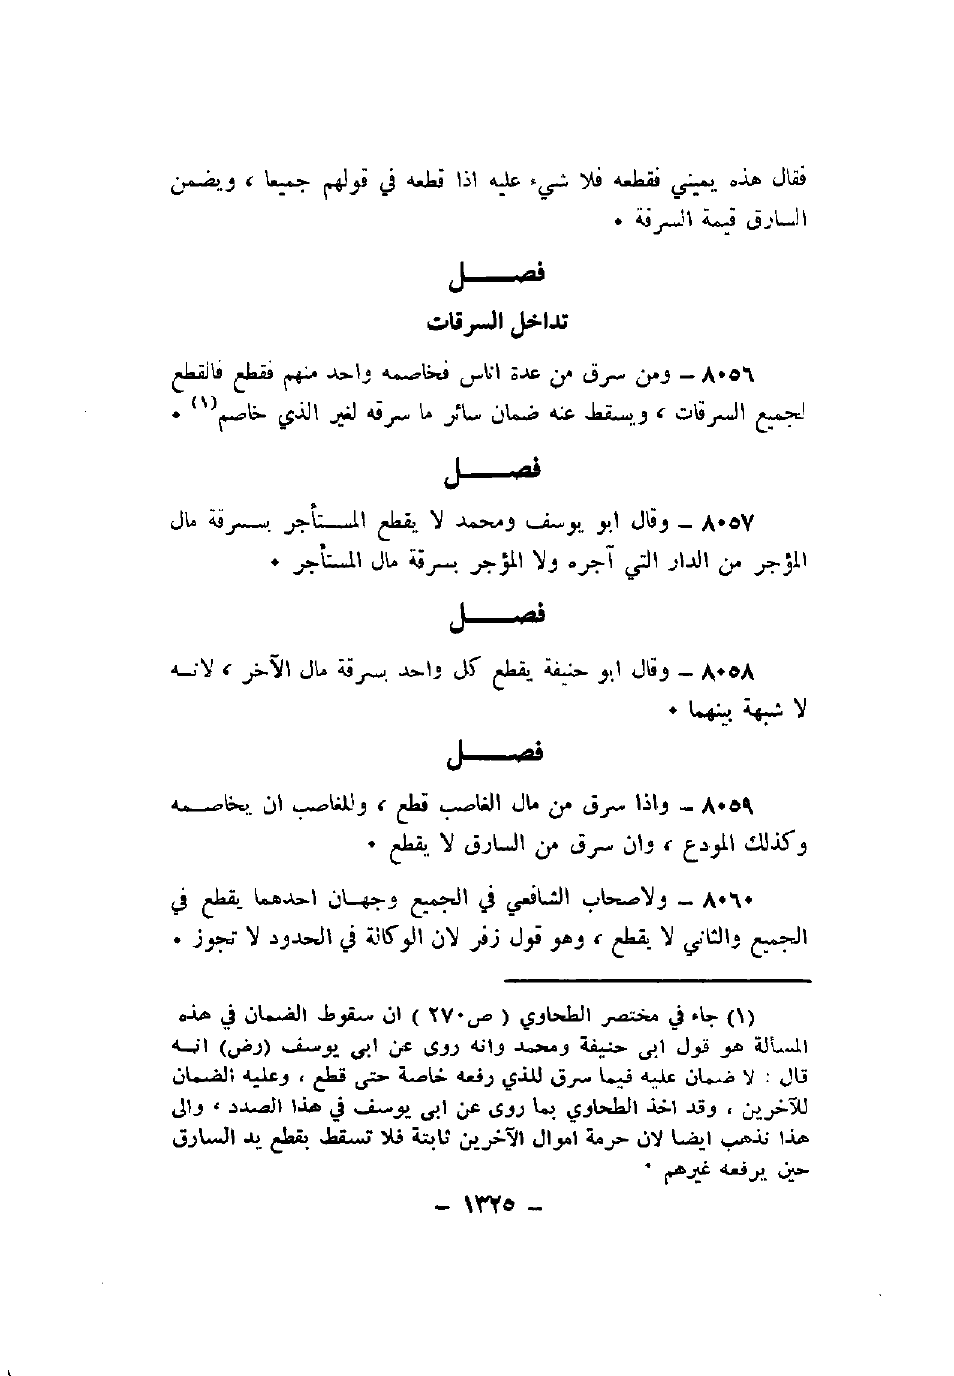 فقال هذه يميني فقطعه فلا شيء عليه اذا قطعه في قولهم جميعا ، ويضمن
السارق قيمة السرقة ٠
فصـــــل
تداخل السرقات
٨٠٥٦ – ومن سرق من عدة اناس فخاصمه واحد منهم فقطع فالقطع
لجميع السرقات ، ويسقط عنه ضمان سائر ما سرقه لغير الذي خاصم(١) ٠
فصـــــل
٨٠٥٧ – وقال ابو يوسف ومحمد لا يقطع المســتأجر بســرقة مال
المؤجر من الدار التي آجره ولا المؤجر بسرقة مال المستأجر ٠
فصـــــل
٨٠٥٨ – وقال ابو حنيفة يقطع كل واحد بسرقة مال الآخر ، لانــه
لا شبهة بينهما ٠
فصـــــل
٨٠٥٩ – واذا سرق من مال الغاصب قطع ، وللغاصب ان يخاصــمه
وكذلك المودع ، وان سرق من السارق لا يقطع ٠
٨٠٦٠ – ولاصحاب الشافعي في الجميع وجهــان احدهما يقطع في
الجميع والثاني لا يقطع ، وهو قول زفر لان الوكالة في الحدود لا تجوز ٠
(١) جاء في مختصر الطحاوي ( ص٢٧٠ ) ان سقوط الضمان في هذه
المسألة هو قول ابى حنيفة ومحمد وانه روى عن ابى يوسف (رض) انــه
قال : لا ضمان عليه فيما سرق للذي رفعه خاصة حتى قطع ، وعليه الضمان
للآخرين ، وقد اخذ الطحاوي بما روى عن ابى يوسف في هذا الصدد ، والى
هذا نذهب ايضا لان حرمة اموال الآخرين ثابتة فلا تسقط بقطع يد السارق
حين يرفعه غيرهم ٠
– ١٣٢٥ –